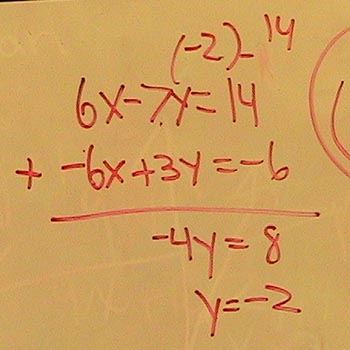 (-2)- 14
6x-7y=14
+ -6x+3y=-6
-4y=8
y=-2